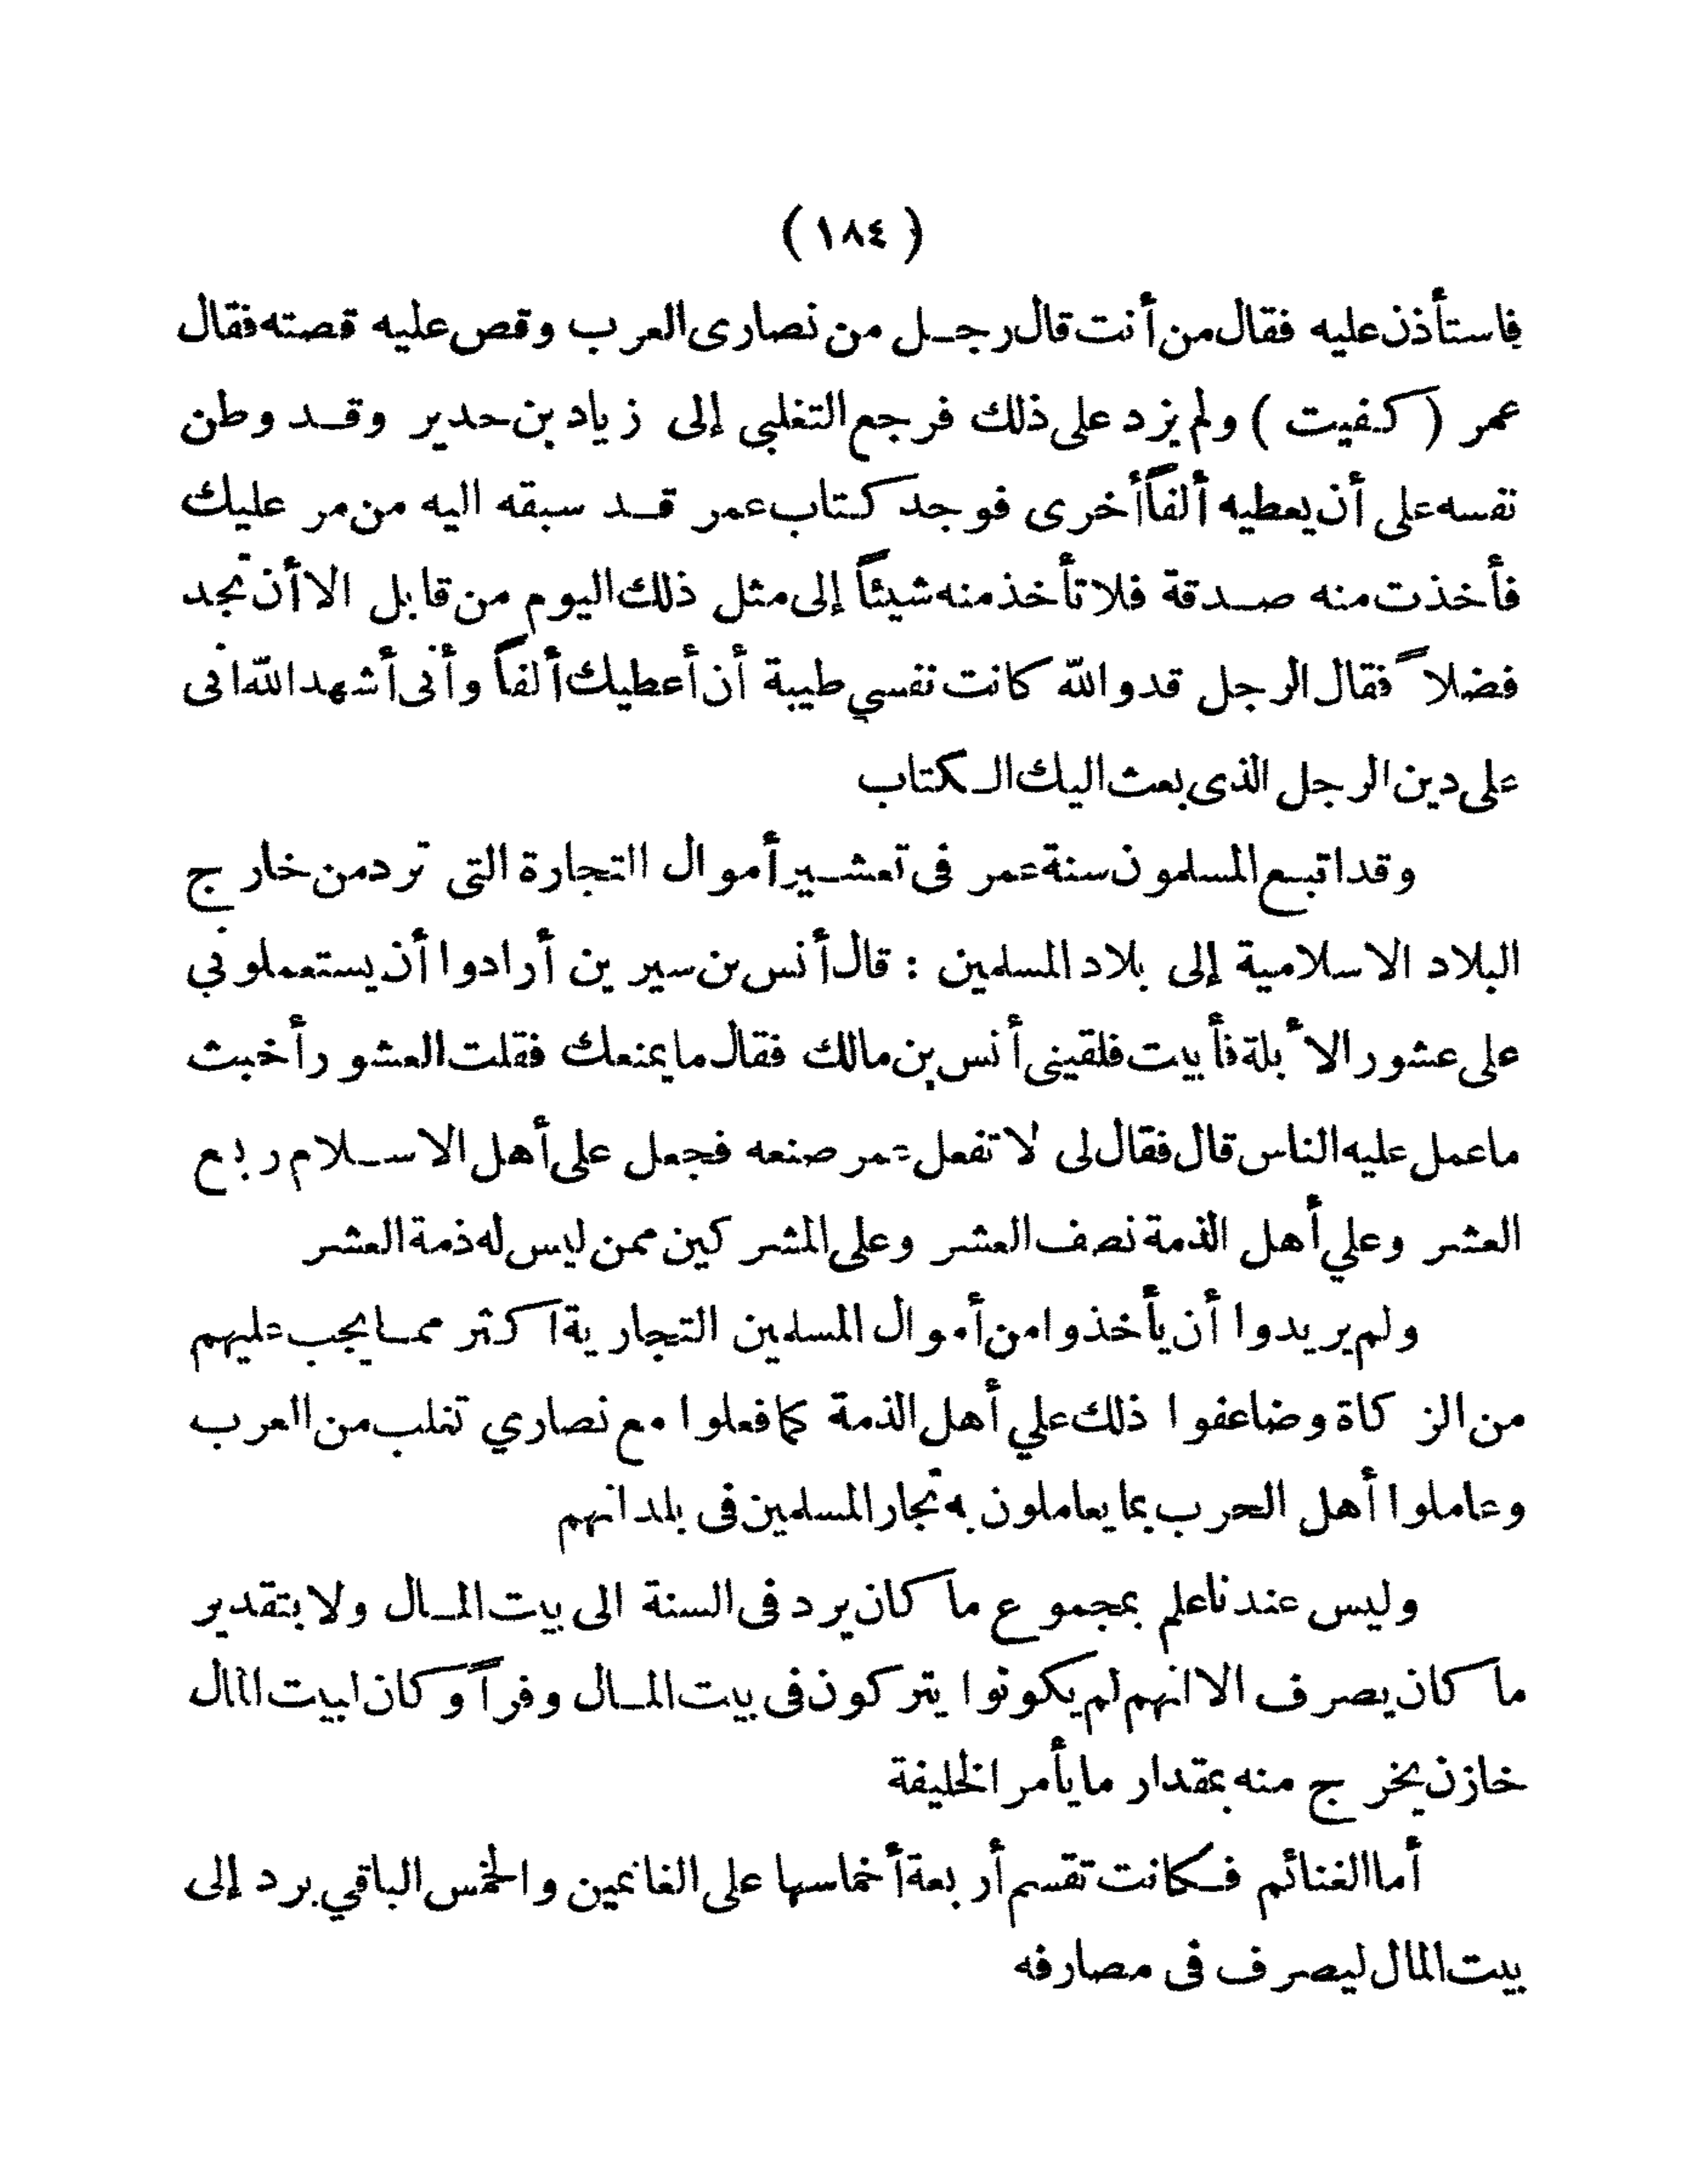 ( ١٨٤ )
فاستأذن عليه فقال من أنت قال رجل من نصارى العرب وقص عليه قصته فقال
عمر ( كفيت ) ولم يزد على ذلك فرجع التغلبي إلى زياد بن حدير وقد وطن
نفسه على أن يعطيه ألفاً أخرى فوجد كتاب عمر قد سبقه اليه من مر عليك
فأخذت منه صدقة فلا تأخذ منه شيئاً إلى مثل ذلك اليوم من قابل الا أن تجد
فضلاً فقال الرجل قد والله كانت نفسي طيبة أن أعطيك ألفاً وأنى أشهد الله انى
على دين الرجل الذى بعث اليك الكتاب
وقد اتبع المسلمون سنة عمر فى تعشير أموال التجارة التى ترد من خارج
البلاد الاسلامية إلى بلاد المسلمين : قال أنس بن سيرين أرادوا أن يستعملونى
على عشور الأبلة فأبيت فلقينى أنس بن مالك فقال ما يمنعك فقلت العشور أخبث
ما عمل عليه الناس قال فقال لى لا تفعل عمر صنعه فجعل على أهل الاسلام ربع
العشر وعلي أهل الذمة نصف العشر وعلى المشركين ممن ليس له ذمة العشر
ولم يريدوا أن يأخذوا من أموال المسلمين التجارية اكثر مما يجب عليهم
من الزكاة وضاعفوا ذلك علي أهل الذمة كما فعلوا مع نصاري تغلب من العرب
وعاملوا أهل الحرب بما يعاملون به تجار المسلمين فى بلدانهم
وليس عندنا علم بمجموع ما كان يرد فى السنة الى بيت المال ولا بتقدير
ما كان يصرف الا انهم لم يكونوا يتركون فى بيت المال وفراً وكان لبيت المال
خازن يخرج منه بمقدار ما يأمر الخليفة
أما الغنائم فكانت تقسم أربعة أخماسها على الغانمين والخمس الباقي يرد إلى
بيت المال ليصرف فى مصارفه